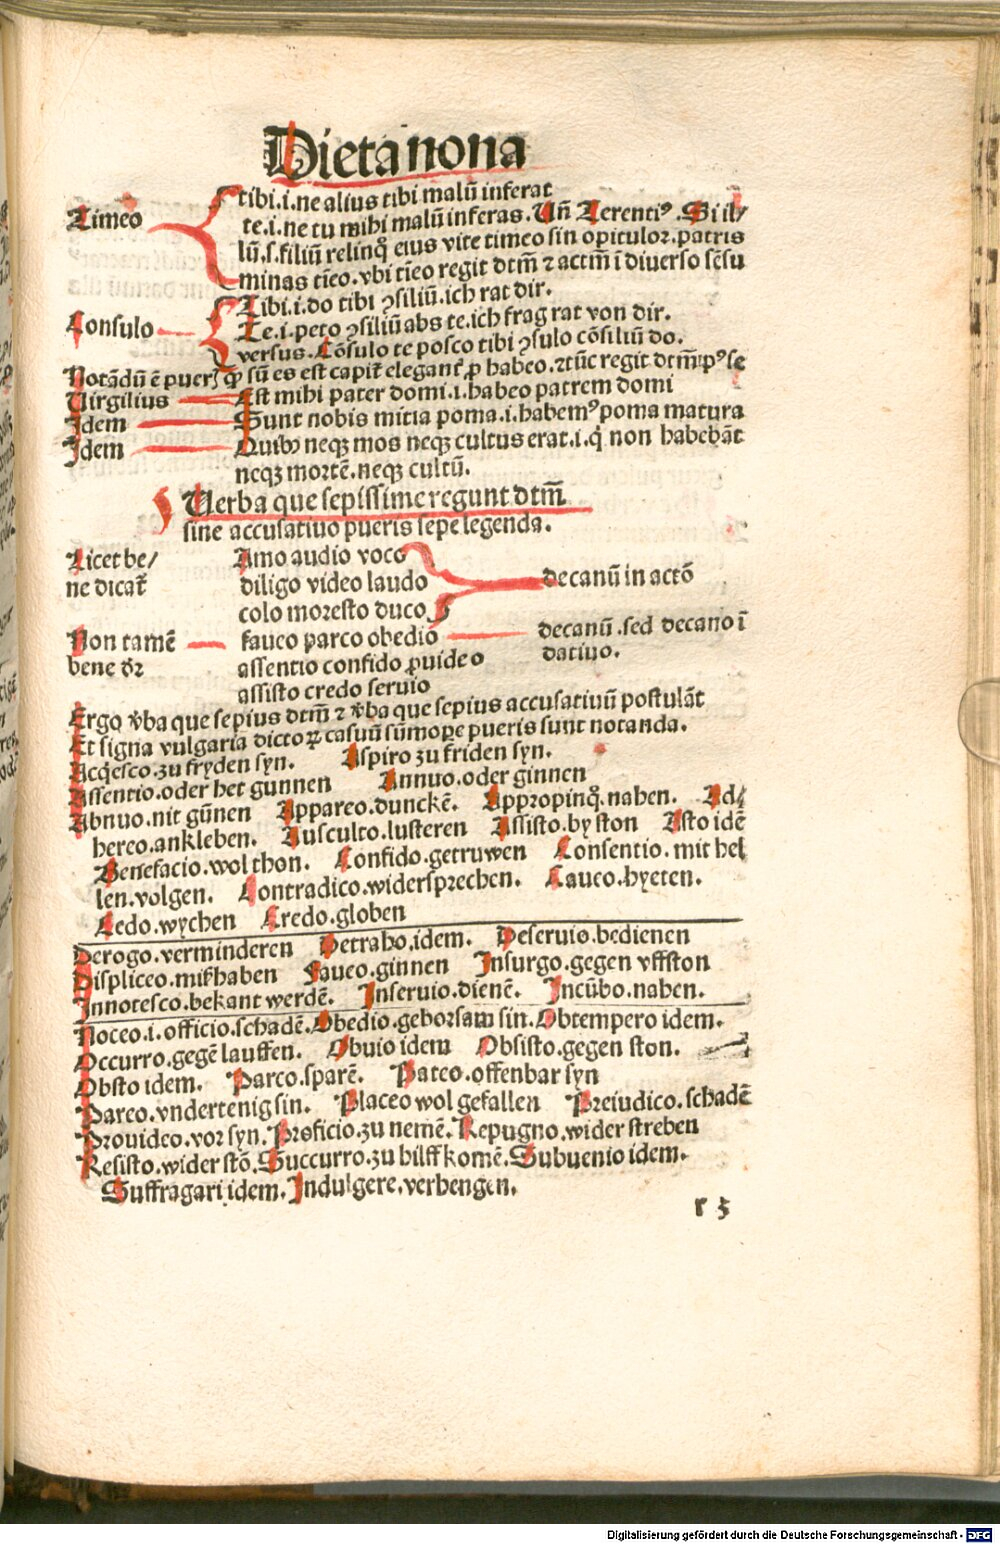 Dieta nona
tibi.i.ne alius tibi malū inferat
Timeo te.i.ne tu mihi malū inferas. Uñ Terentiꝰ. Si il/
lū.s.filiū relinqͦ eius vite timeo sin opitulor. patris
minas tīeo. vbi tīeo regit dtm̄ ⁊ actm̄ ī diuerso sēsu
Tibi.i.do tibi ꝯsiliū.ich rat dir.
Consulo Te.i.peto ꝯsiliū abs te.ich frag rat von dir.
versus. Cōsulo te posco tibi ꝯsulo cōsiliū do.
Notādū ē puerꝭ ꝙ sū es est capit̄ elegant̄ ꝓ habeo. ⁊tūc regit dtm̄ pꝰ se
Uirgilius Est mihi pater domi.i.habeo patrem domi
Idem Sunt nobis mitia poma.i.habemꝰ poma matura
Idem Quibꝰ neqꝫ mos neqꝫ cultus erat.i.q̇ non habebāt
neqꝫ mortē.neqꝫ cultū.
Uerba que sepissime regunt dtm̄
sine accusatiuo pueris sepe legenda.
Licet be/ Amo audio voco
ne dicat̄ diligo video laudo decanū in actō
colo molesto duco
Non tamē fauco parco obedio decanū.sed decano ī
bene dr̄ assentio confido ꝓuideo datiuo.
assisto credo seruio
Ergo v̄ba que sepius dtm̄ ⁊ v̄ba que sepius accusatiuū postulāt
Et signa vulgaria dictoꝝ casuū sūmope pueris sunt notanda.
Acq̇esco.zu fryden syn. Aspiro zu friden syn.
Assentio.oder het gunnen Annuo.oder ginnen
Abnuo.nit gūnen Appareo.dunckē. Appropinq̇.nahen. Ad/
hereo.ankleben. Ausculto.lusteren Assisto.by ston Asto idē
Benefacio.wol thon. Confido.getruwen Consentio.mit hel
len.volgen. Contradico.widersprechen. Caueo.hyeten.
Cedo.wychen Credo.globen
Derogo.verminderen Detraho.idem. Deseruio.bedienen
Displiceo.mißhaben Faueo.ginnen Insurgo.gegen vffston
Innotesco.bekant werdē. Inseruio.dienē. Incūbo.nahen.
Noceo.i.officio.schadē. Obedio.gehorsam sin. Obtempero idem.
Occurro.gegē lauffen. Obuio idem Obsisto.gegen ston.
Obsto idem. Parco.sparē. Pateo.offenbar syn
Pareo.vndertenig sin. Placeo wol gefallen Preiudico.schadē
Prouideo.vor syn. Proficio.zu nemē. Repugno.wider streben
Resisto.wider stō. Succurro.zu hilff komē. Subuenio idem.
Suffragari idem. Indulgere.verhengen.
r 3
Digitalisierung gefördert durch die Deutsche Forschungsgemeinschaft - DFG